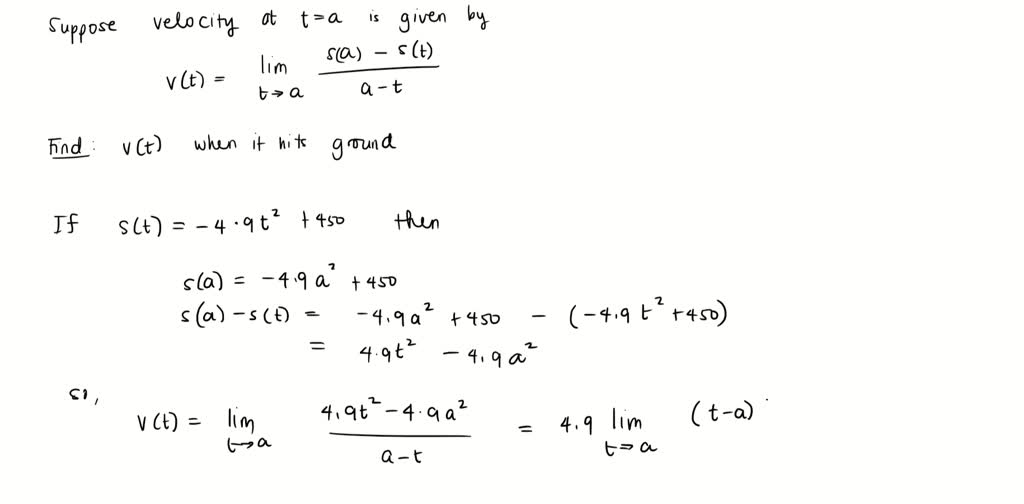 Suppose velocity at t=a is given by
v(t) = lim t→a (s(a) − s(t))/(a−t)
Find: v(t) when it hits ground
If s(t) = −4.9t² + 450 then
s(a) = −4.9a² + 450
s(a) − s(t) = −4.9a² + 450 − (−4.9t² + 450)
= 4.9t² − 4.9a²
so,
v(t) = lim t→a (4.9t² − 4.9a²)/(a−t) = 4.9 lim t→a (t−a)